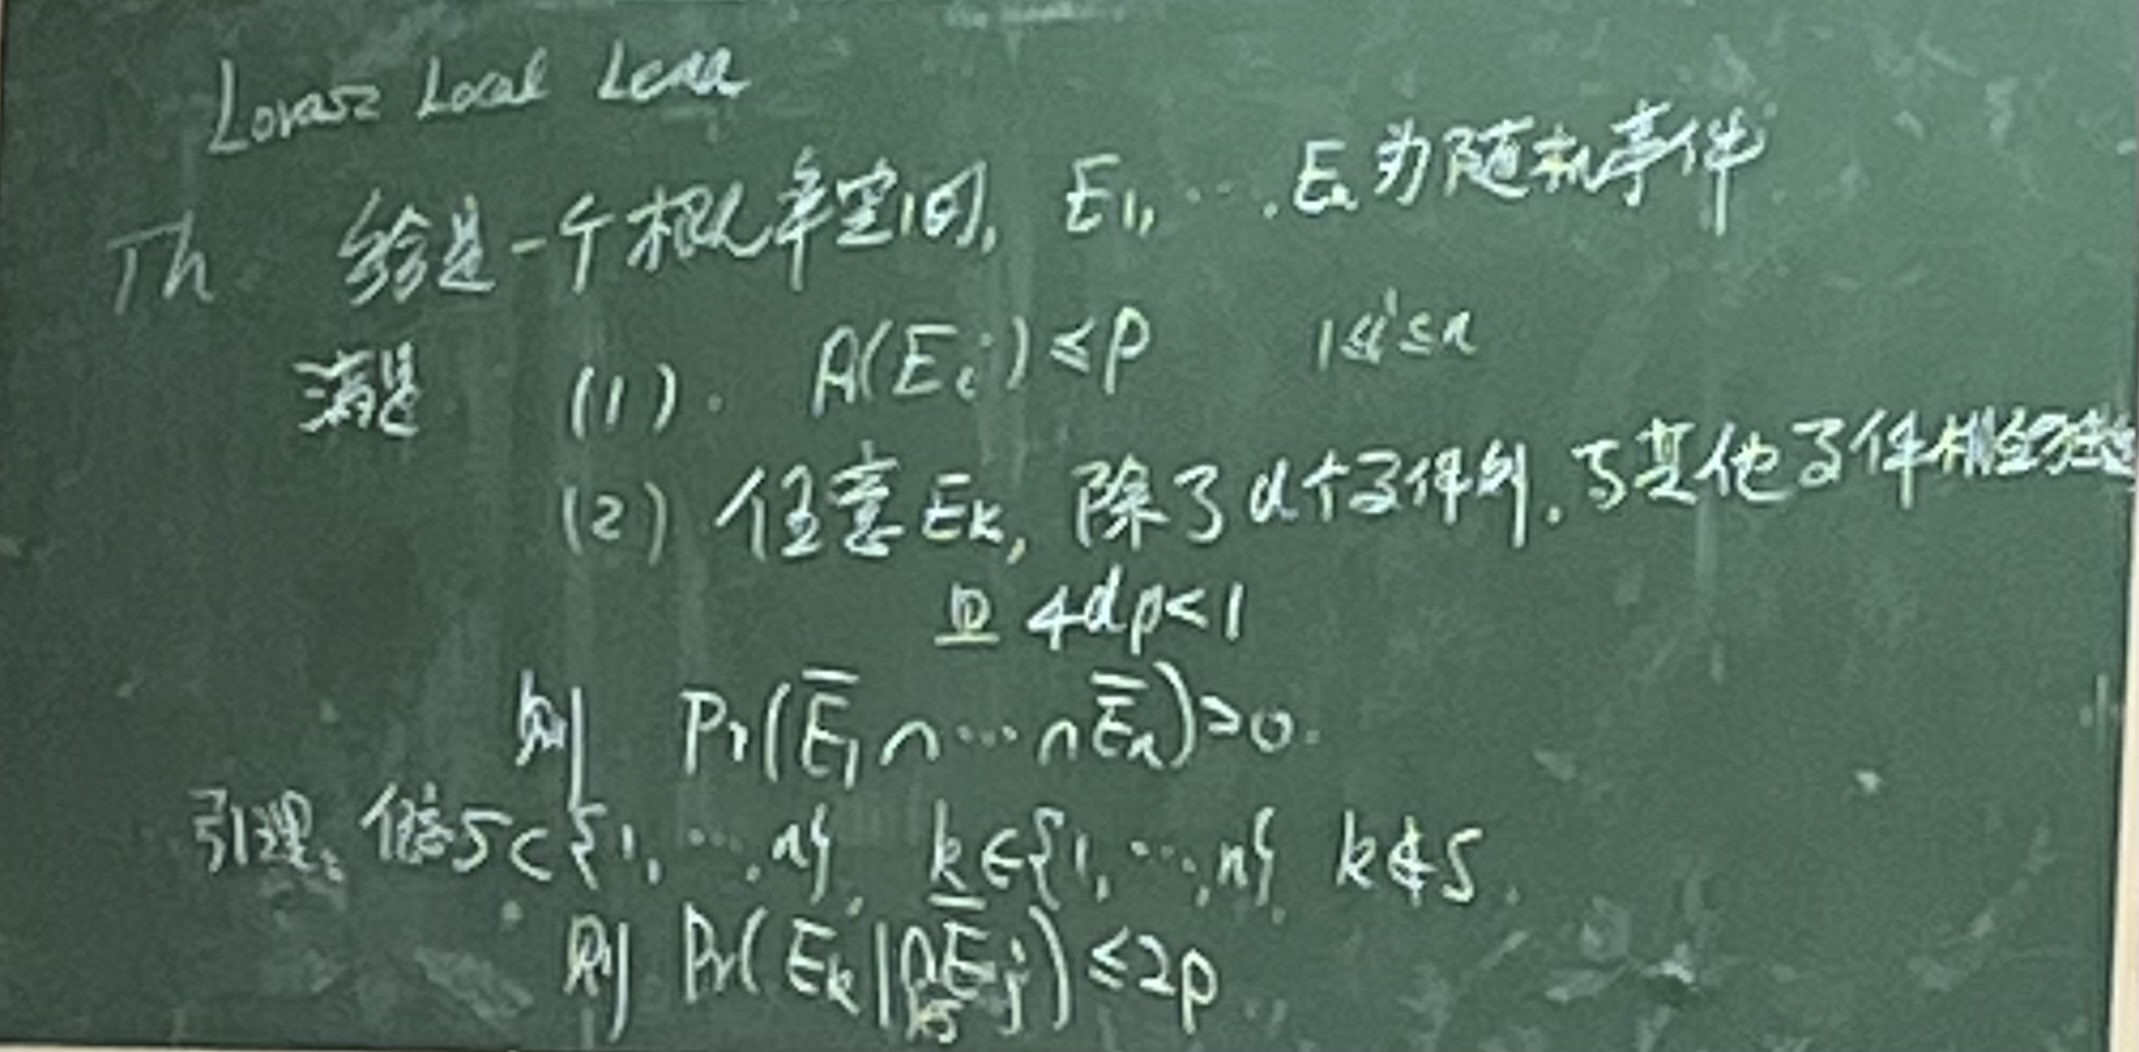 Lovasz Local Lema
Th. 给定一个概率空间, E₁, ⋯, Eₙ 为随机事件
满足 (1). Pr(Eᵢ) ≤ p 1≤i≤n
(2) 任意 Eₖ, 除了 d 个事件外, 与其他事件相互独立
且 4dp < 1
则 Pr(Ē₁ ∩ ⋯ ∩ Ēₙ) > 0.
引理. 假忿 S ⊂ {1, ⋯, n}, k ∈ {1, ⋯, n} k ∉ S.
则 Pr(Eₖ | ∩_{j∈S} Ēⱼ) ≤ 2p